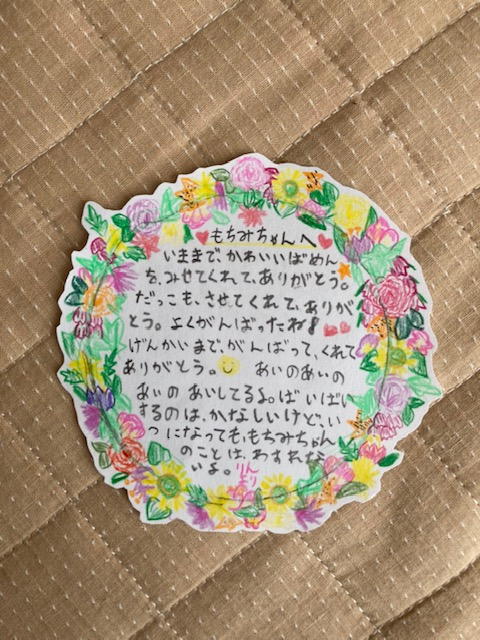 ♥もちみちゃんへ♥
いままで、かわいいばめん
を、みせてくれて、ありがとう。
だっこも、させてくれて、ありが
とう。よくがんばったね!
げんかいまで、がんばって、くれて
ありがとう。 あいのあいの
あいの あいしてるよ。ばいばい
するのは、かなしいけど、い
つになっても、もちみちゃん
のことは、わすれな
いよ。りん
より